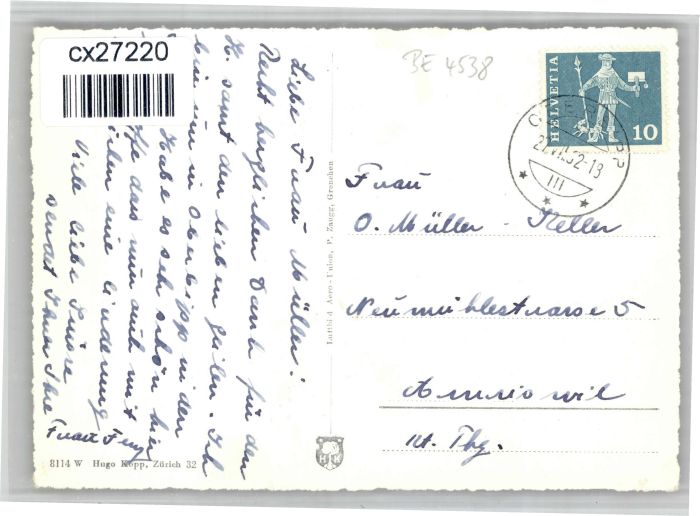 cx27220
BE 4538
HELVETIA
10
27.VII.62-13
III
Liebe Frau Müller!
Recht herzlichen Dank für den
H. samt den lieben Zeilen. Ich
bin nun in Oberbipp in den
Habe es sehr schön hier
das nun auch mit
eine Linderung
Viele liebe Grüsse
sendet Ihnen Ihre
Frau Feny
Frau
O. Müller - Keller
Neumühlestrasse 5
Amriswil
Kt. Thg.
Luftbild Aero-Union, P. Zaugg, Grenchen
8114 W Hugo Kopp, Zürich 32